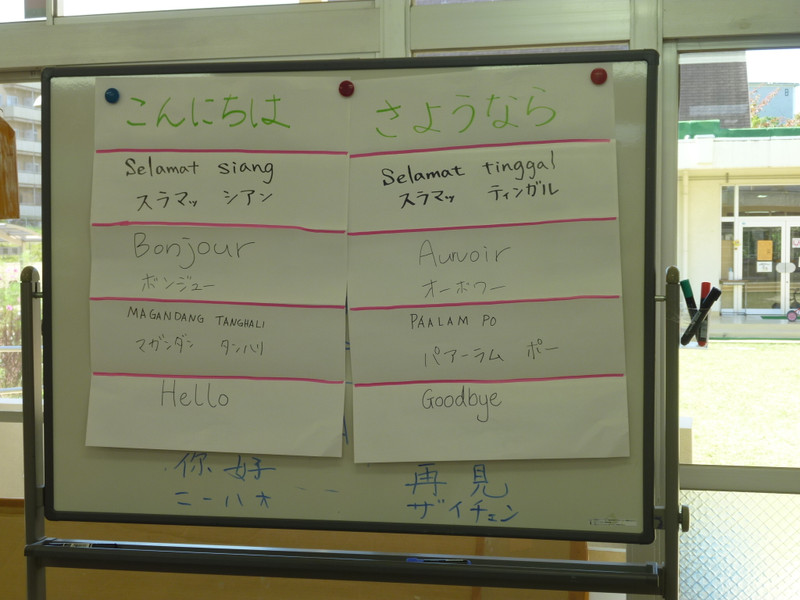 こんにちは
Selamat siang
スラマッ シアン
Bonjour
ボンジュー
MAGANDANG TANGHALI
マガンダン タンハリ
Hello
你好
ニーハオ
さようなら
Selamat tinggal
スラマッ ティンガル
Auvoir
オーボワー
PAALAM PO
パアーラム ポー
Goodbye
再見
ザイチェン